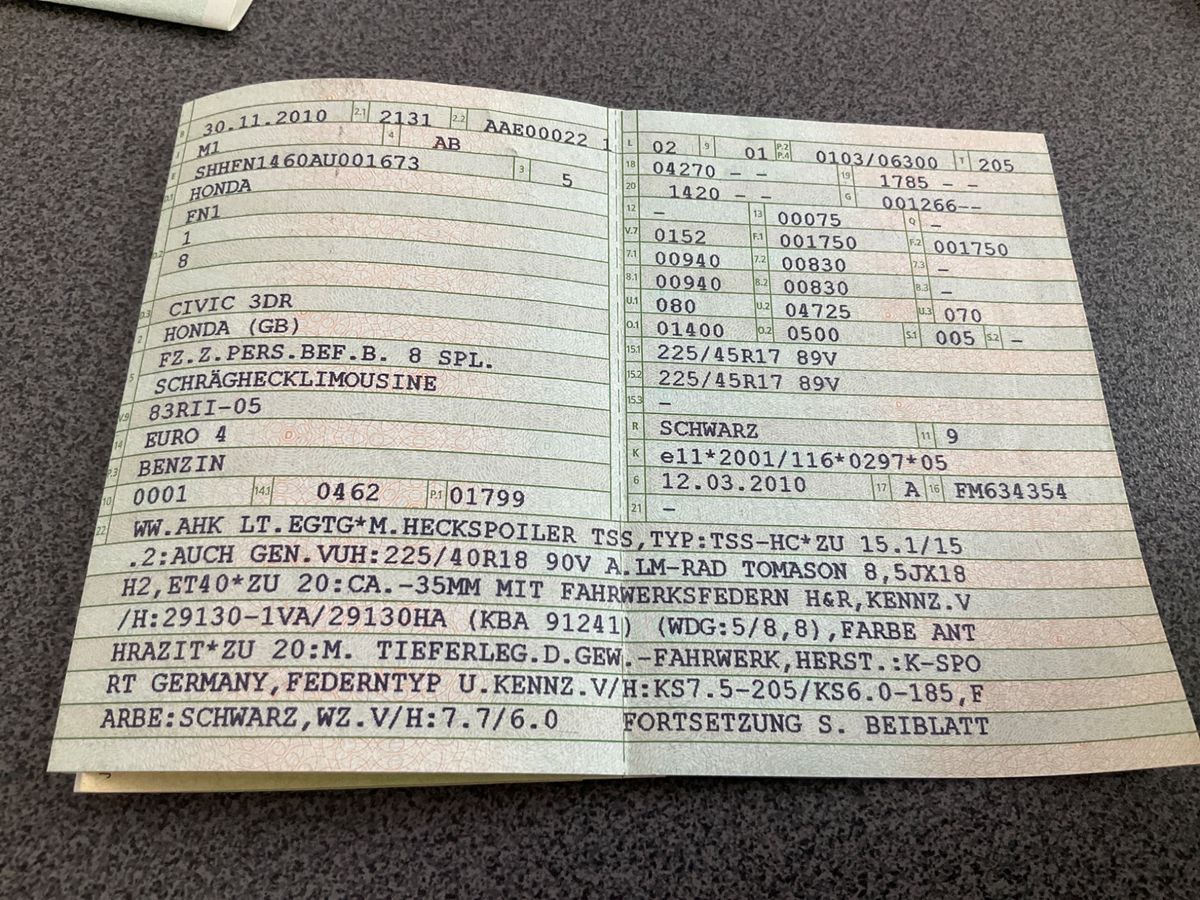 B 30.11.2010 2.1 2131 2.2 AAE00022 1
J M1 4 AB
E SHHFN1460AU001673 3 5
D.1 HONDA
FN1
1
D.2 8
D.3 CIVIC 3DR
2 HONDA (GB)
FZ.Z.PERS.BEF.B. 8 SPL.
5 SCHRÄGHECKLIMOUSINE
V.9 83RII-05
14 EURO 4
P.3 BENZIN
10 0001 14.1 0462 P.1 01799
L 02 9 01 P.2 P.4 0103/06300 T 205
18 04270 - - 19 1785 - -
20 1420 - - G 001266--
12 - 13 00075 Q -
V.7 0152 F.1 001750 F.2 001750
7.1 00940 7.2 00830 7.3 -
8.1 00940 8.2 00830 8.3 -
U.1 080 U.2 04725 U.3 070
O.1 01400 O.2 0500 S.1 005 S.2 -
15.1 225/45R17 89V
15.2 225/45R17 89V
15.3 -
R SCHWARZ 11 9
K e11*2001/116*0297*05
6 12.03.2010 17 A 16 FM634354
21 -
22 WW.AHK LT.EGTG*M.HECKSPOILER TSS,TYP:TSS-HC*ZU 15.1/15
.2:AUCH GEN.VUH:225/40R18 90V A.LM-RAD TOMASON 8,5JX18
H2,ET40*ZU 20:CA.-35MM MIT FAHRWERKSFEDERN H&R,KENNZ.V
/H:29130-1VA/29130HA (KBA 91241) (WDG:5/8,8),FARBE ANT
HRAZIT*ZU 20:M. TIEFERLEG.D.GEW.-FAHRWERK,HERST.:K-SPO
RT GERMANY,FEDERNTYP U.KENNZ.V/H:KS7.5-205/KS6.0-185,F
ARBE:SCHWARZ,WZ.V/H:7.7/6.0 FORTSETZUNG S. BEIBLATT